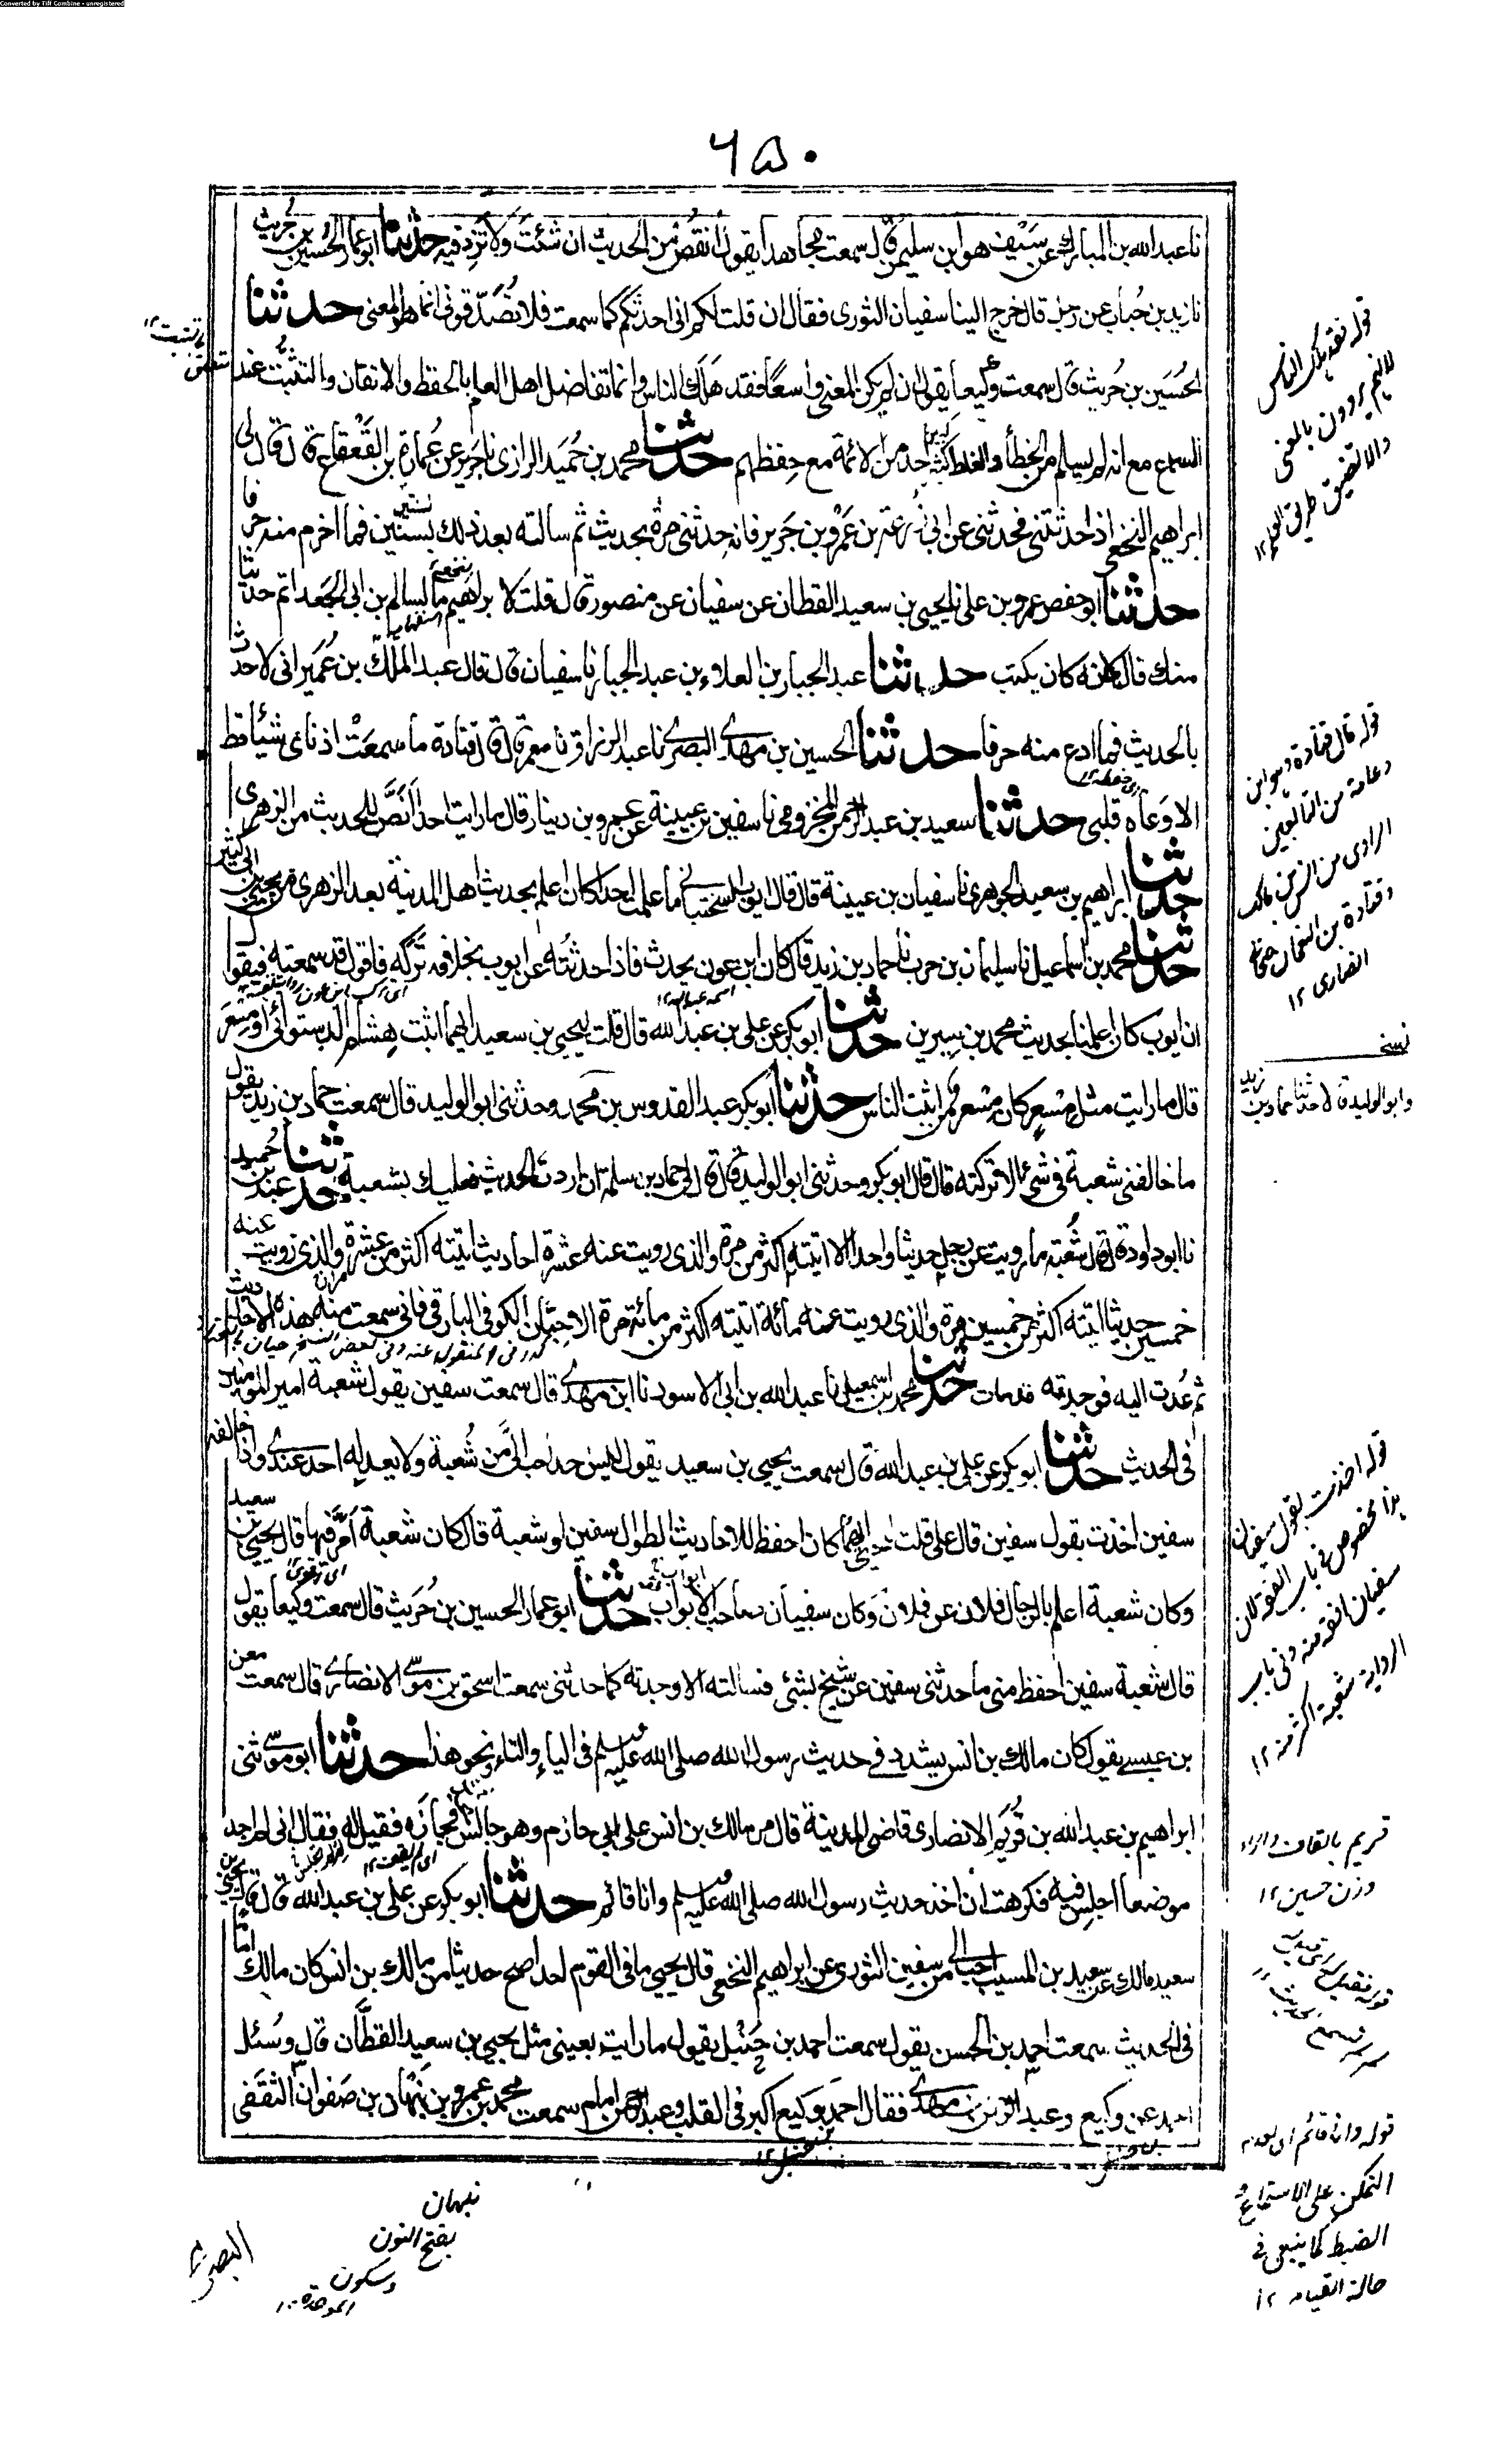 Converted by Tiff Combine - unregistered
٦٥٠
نا عبد الله بن المبارك عن سَيْف هو ابن سليمن قال سمعت مجاهدا يقول انقُص من الحديث ان شئتَ ولا تزد فيه حدثنا ابو عمار الحُسين بن حُريث
نا زيد بن حُباب عن رجل قال خرج الينا سفيان الثورى فقال ان قلت لكم انى احدثكم كما سمعت فلا تصدّقونى انما هو المعنى حدثنا
الحُسَين بن حُريث قال سمعت وكيعا يقول ان لم يكن المعنى واسعًا فقد هَلَك الناس وانما تفاضل اهل العلم بالحفظ والاتقان والتثبُّت عند
السماع مع انه لم يسلم من الخطأ والغلط كثير احد من الائمة مع حِفظهم حدثنا محمد بن حُمَيد الرازى نا جَرير عن عُمارة بن القَعْقاع قال قال لى
ابراهيم النخعى اذا حدثتنى فحدثنى عن ابى زُرعة بن عَمْرو بن جَرير فانه حدثنى مرة بحديث ثم سالته بعد ذلك بسنين فما اخرم منه حرفا
حدثنا ابو حفص عمرو بن على نا يحيى بن سعيد القطان عن سفيان عن منصور قال قلت لابراهيم ما لسالم بن ابى الجَعد اتم حديثا
منك قال لانه كان يكتب حدثنا عبد الجبار بن العلاء بن عبد الجبار نا سفيان قال قال عبد الملك بن عُمَير انى لاحدث
بالحديث فما ادع منه حرفا حدثنا الحسين بن مهدى البصرى نا عبد الرزاق نا معمر قال قال قتادة ما سمعَتْ اذناى شيئا قط
الا وَعاه قلبى حدثنا سعيد بن عبد الرحمن المخزومى نا سفين بن عيينة عن عمرو بن دينار قال ما رايت احدا انَصَّ للحديث من الزهرى
حدثنا ابراهيم بن سعيد الجوهرى نا سفيان بن عيينة قال قال ايوب السختيانى ما علمت احدا كان اعلم بحديث اهل المدينة بعد الزهرى من يحيى بن ابى كثير
حدثنا محمد بن اسماعيل نا سليمان بن حرب نا حماد بن زيد قال كان ابن عون يحدث فاذا حدثته عن ايوب بخلافه تركه فاقول قد سمعته فيقول
ان ايوب كان اعلمنا بحديث محمد بن سيرين حدثنا ابو بكر عن على بن عبد الله قال قلت ليحيى بن سعيد ايهما اثبت هِشام الدستوائى او مِسْعَر
قال ما رايت مثل مِسْعر كان مِسْعر من اثبت الناس حدثنا ابو بكر عبد القدوس بن محمد وحدثنى ابو الوليد قال سمعت حماد بن زيد يقول
ما خالفنى شعبة فى شئ الا تركته قال قال ابو بكر وحدثنى ابو الوليد قال قال لى حماد بن سلمة ان اردت الحديث فعليك بشعبة حدثنا عبد بن حُميد
نا ابو داود قال قال شُعبة ما رويت عن رجل حديثا واحدا الا اتيته اكثر من مرة والذى رويت عنه عشرة احاديث اتيته اكثر من عشرة مرار والذى رويت عنه
خمسين حديثا اتيته اكثر من خمسين مرة والذى رويت عنه مائة اتيته اكثر من مائة مرة الا حبّان الكوفى البارقى فانى سمعت منه هذه الاحاديث
ثم عُدت اليه فوجدته قد مات حدثنا محمد بن اسمعيل نا عبد الله بن ابى الاسود نا ابن مهدى قال سمعت سفين يقول شعبة امير المؤمنين
فى الحديث حدثنا ابو بكر عن على بن عبد الله قال سمعت يحيى بن سعيد يقول ليس احد احب الىَّ من شُعبة ولا يعدله احد عندى واذا خالفه
سفين اخذت بقول سفين قال على قلت ليحيى ايهما كان احفظ للاحاديث الطوال سفين او شعبة قال كان شعبة اَمَرَّ فيها قال يحيى بن سعيد
وكان شعبة اعلم بالرجال فلان عن فلان وكان سفيان صاحب الابواب حدثنا ابو عمار الحسين بن حُريث قال سمعت وكيعا يقول
قال شعبة سفين احفظ منى ما حدثنى سفين عن شيخ بشئى فسالته الا وجدته كما حدثنى سمعت اسحق بن موسى الانصارى قال سمعت معن
بن عيسى يقول كان مالك بن انس يشدد فى حديث رسول الله صلى الله عليه وسلم فى الياء والتاء ونحو هذا حدثنا ابو موسى ثنى
ابراهيم بن عبد الله بن قُرَيم الانصارى قاضى المدينة قال مر مالك بن انس على ابى حازم وهو جالس فجازه فقيل له فقال انى لم اجد
موضعا اجلس فيه فكرهت ان اخذ حديث رسول الله صلى الله عليه وسلم وانا قائم حدثنا ابو بكر عن على بن عبد الله قال قال يحيى بن
سعيد مالك عن سعيد بن المسيب احب الى من سفين الثورى عن ابراهيم النخعى قال يحيى ما فى القوم احد اصح حديثا من مالك بن انس كان مالك اماما
فى الحديث سمعت احمد بن الحسن يقول سمعت احمد بن حَنْبل يقول ما رايت بعينى مثل يحيى بن سعيد القطَّان قال وسُئل
احمد عن وكيع وعبد الرحمن بن مهدى فقال احمد وكيع اكبر فى القلب وعبد الرحمن امام سمعت محمد بن عمرو بن نَبْهان بن صَفوان الثقفى
قوله فقد هلك الناس
لانهم يروون بالمعنى
والا لضيق طريق العلم ١٢
قوله قال قتادة وهو ابن
دعامة من التابعين
الراوى من انس بن مالك
وقتادة بن النعمان صحابى
انصارى ١٢
نسخه
وابو الوليد قالا حدثنا حماد بن زيد
قوله اخذت بقول سفيان
هذا مخصوص فى باب الفقه لان
سفيان افقه منه وفى باب
الرواية شعبة اكثر منه ١٢
قريم بالقاف والراء
وزن حسين ١٢
قوله وانا قائم اى لعدم
التمكن على الاستماع و
الضبط كما ينبغى فى
حالة القيام ١٢
نبهان
بفتح النون
وسكون
الموحدة ١٢
البصرى